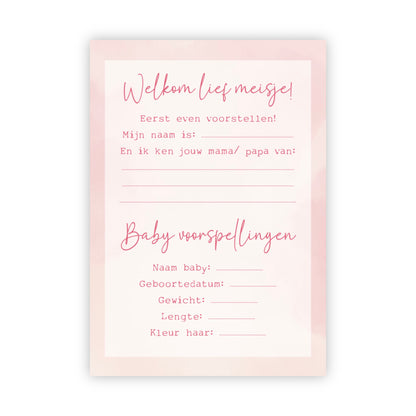 Welkom lief meisje!
Eerst even voorstellen!
Mijn naam is:
En ik ken jouw mama/ papa van:
Baby voorspellingen
Naam baby:
Geboortedatum:
Gewicht:
Lengte:
Kleur haar: